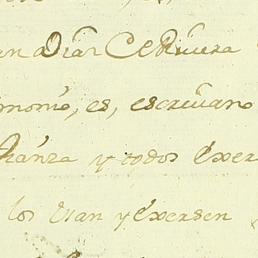 an adian CeRivera
monio, es, escrivano
ianza y todos exer
los Vsan y exersen